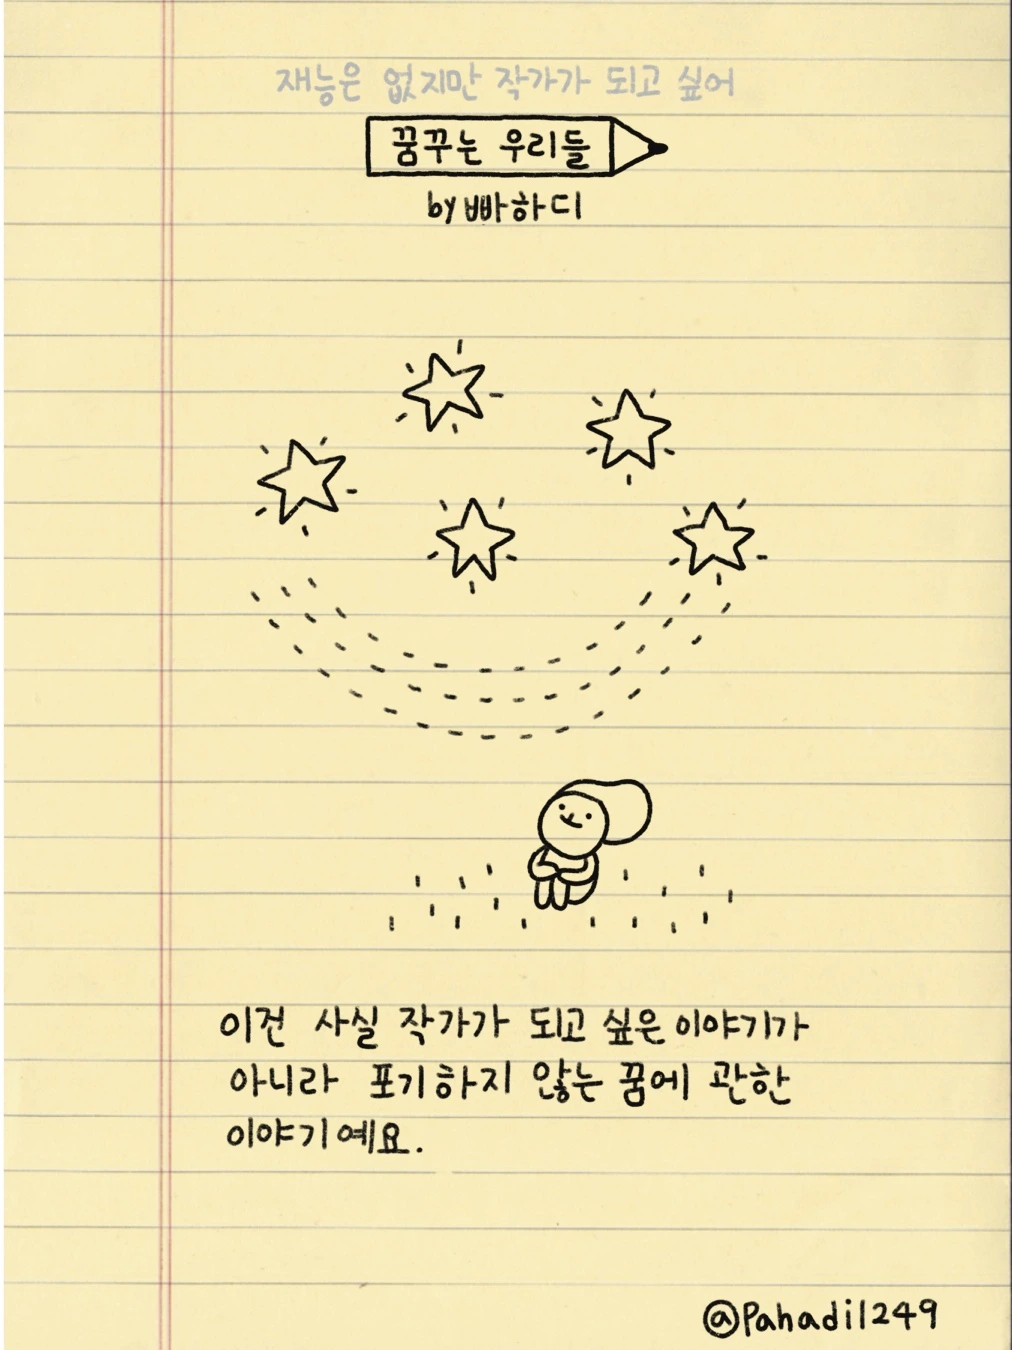 재능은 없지만 작가가 되고 싶어
꿈꾸는 우리들
by 빠하디
이건 사실 작가가 되고 싶은 이야기가
아니라 포기하지 않는 꿈에 관한
이야기예요.
@Pahadi1249